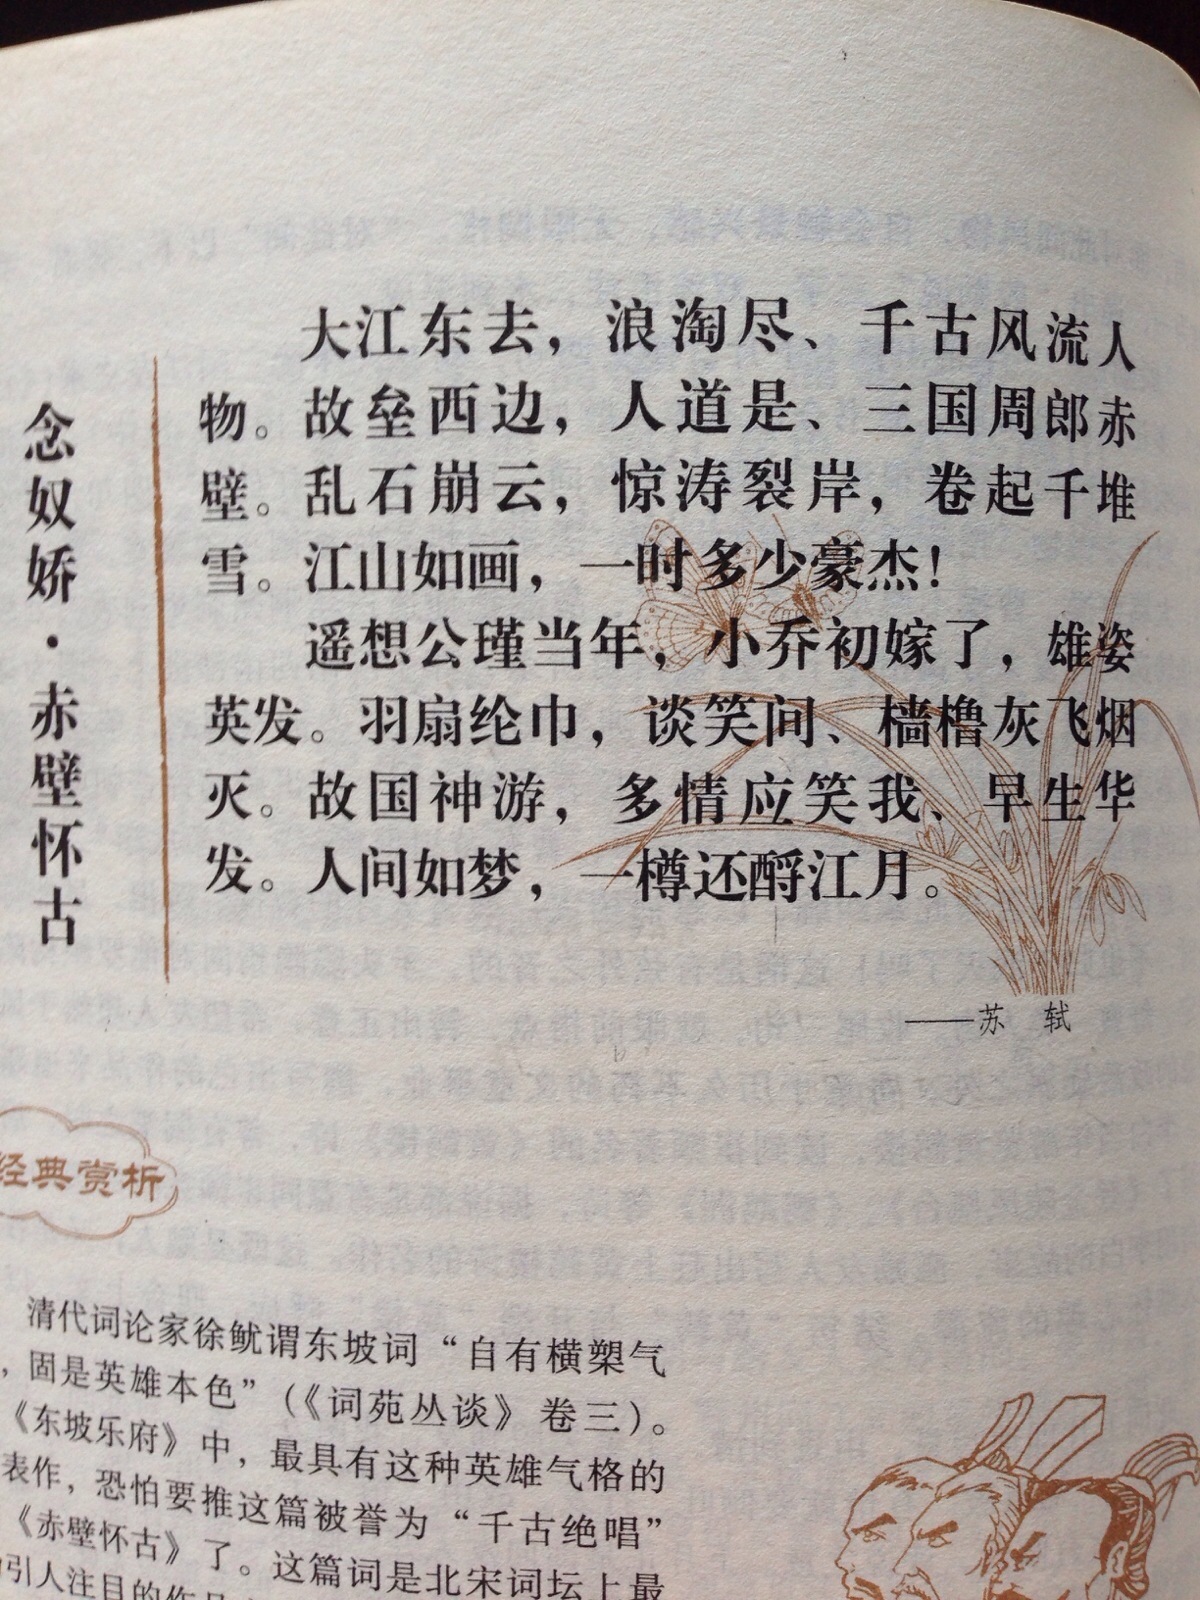 念奴娇·赤壁怀古
大江东去，浪淘尽、千古风流人
物。故垒西边，人道是、三国周郎赤
壁。乱石崩云，惊涛裂岸，卷起千堆
雪。江山如画，一时多少豪杰！
遥想公瑾当年，小乔初嫁了，雄姿
英发。羽扇纶巾，谈笑间、樯橹灰飞烟
灭。故国神游，多情应笑我、早生华
发。人间如梦，一樽还酹江月。
——苏 轼
经典赏析
清代词论家徐釚谓东坡词“自有横槊气
，固是英雄本色”（《词苑丛谈》卷三）。
《东坡乐府》中，最具有这种英雄气格的
表作，恐怕要推这篇被誉为“千古绝唱”
《赤壁怀古》了。这篇词是北宋词坛上最
引人注目的作品